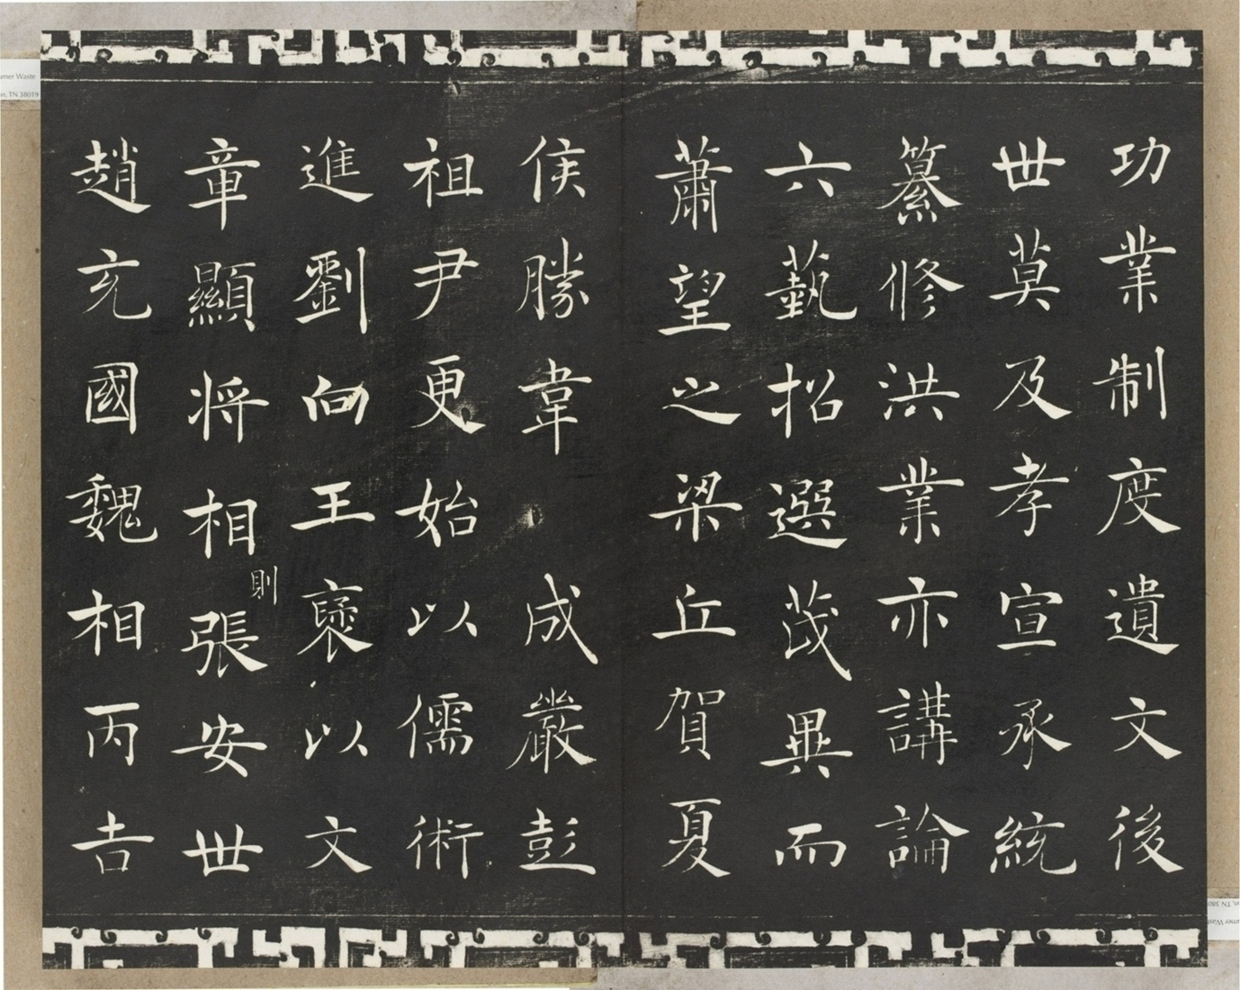 功業制度遺文後
世莫及孝宣承統
纂修洪業亦講論
六藝招選茂異而
蕭望之梁丘賀夏
侯勝韋成嚴彭
祖尹更始以儒術
進劉向王褒以文
章顯將相則張安世
趙充國魏相丙吉
umer Waste
n, TN 38019